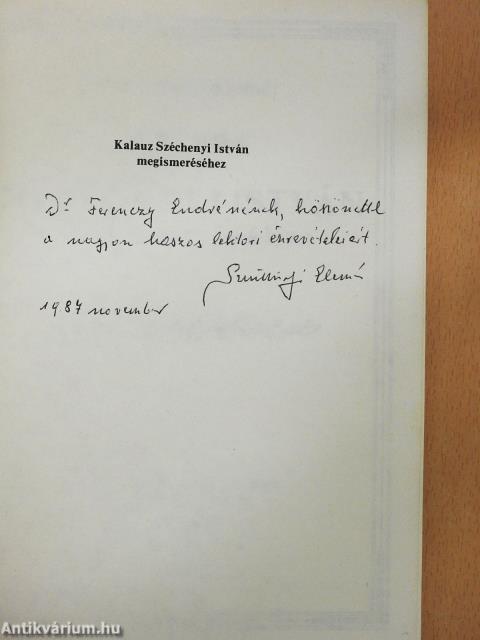 Kalauz Széchenyi István
megismeréséhez
Dr Ferenczy Endrénének, köszönettel
a nagyon hasznos lektori észrevételeiért.
Elemér
1987 november
Antikvárium.hu